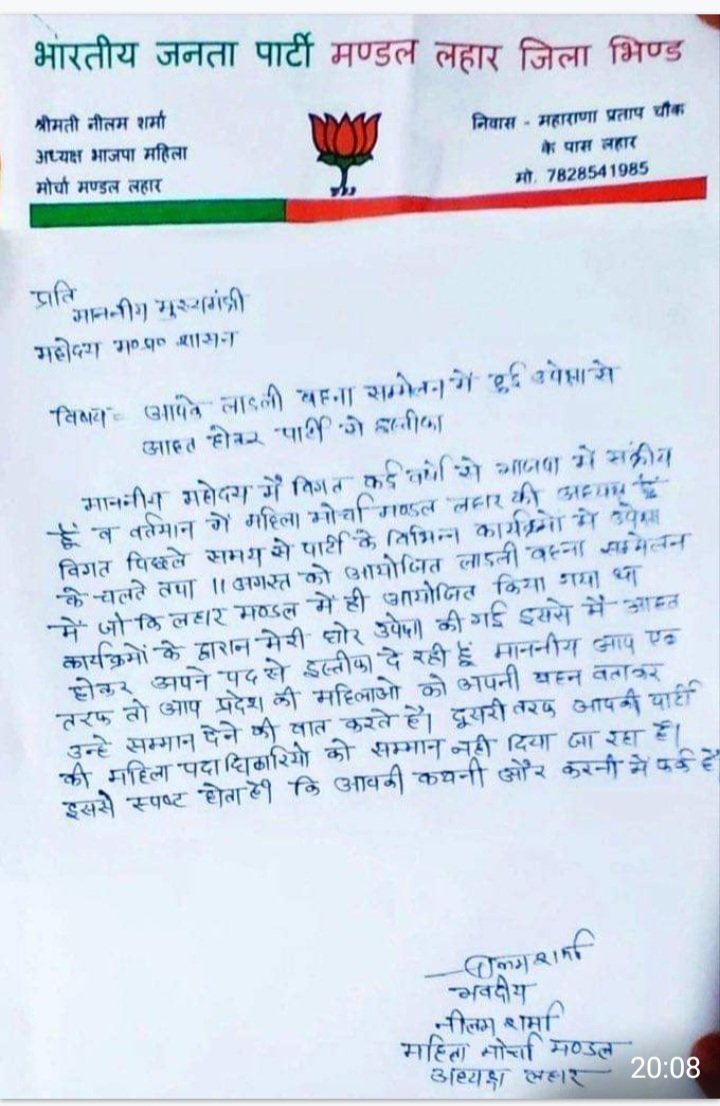 भारतीय जनता पार्टी मण्डल लहार जिला भिण्ड
श्रीमती नीलम शर्मा
अध्यक्ष भाजपा महिला
मोर्चा मण्डल लहार
निवास - महाराणा प्रताप चौक
के पास लहार
मो. 7828541985
प्रति
माननीय मुख्यमंत्री
महोदय म०प्र० शासन
विषय = आपके लाडली बहना सम्मेलन में हुई उपेक्षा से
आहत होकर पार्टी से इस्तीफा
माननीय महोदय में विगत कई वर्षो से भाजपा में सक्रीय
हूँ व वर्तमान में महिला मोर्चा मण्डल लहार की अध्यक्ष हूँ
विगत पिछले समय से पार्टी के विभिन्न कार्यक्रमो में उपेक्षा
के चलते तथा 11 अगस्त को आयोजित लाडली बहना सम्मेलन
में जो कि लहार मण्डल में ही आयोजित किया गया था
कार्यक्रमों के द्वारान मेरी घोर उपेक्षा की गई इससे में आहत
होकर अपने पद से इस्तीफा दे रही हूं माननीय आप एक
तरफ तो आप प्रदेश की महिलाओ को अपनी बहन बताकर
उन्हे सम्मान देने की बात करते है। दूसरी तरफ आपकी पार्टी
की महिला पदाधिकारियो को सम्मान नही दिया जा रहा है।
इससे स्पष्ट होता है। कि आपकी कथनी और करनी में फर्क है
नीलम शर्मा
भवदीय
नीलम शर्मा
महिला मोर्चा मण्डल
अध्यक्ष लहार
20:08